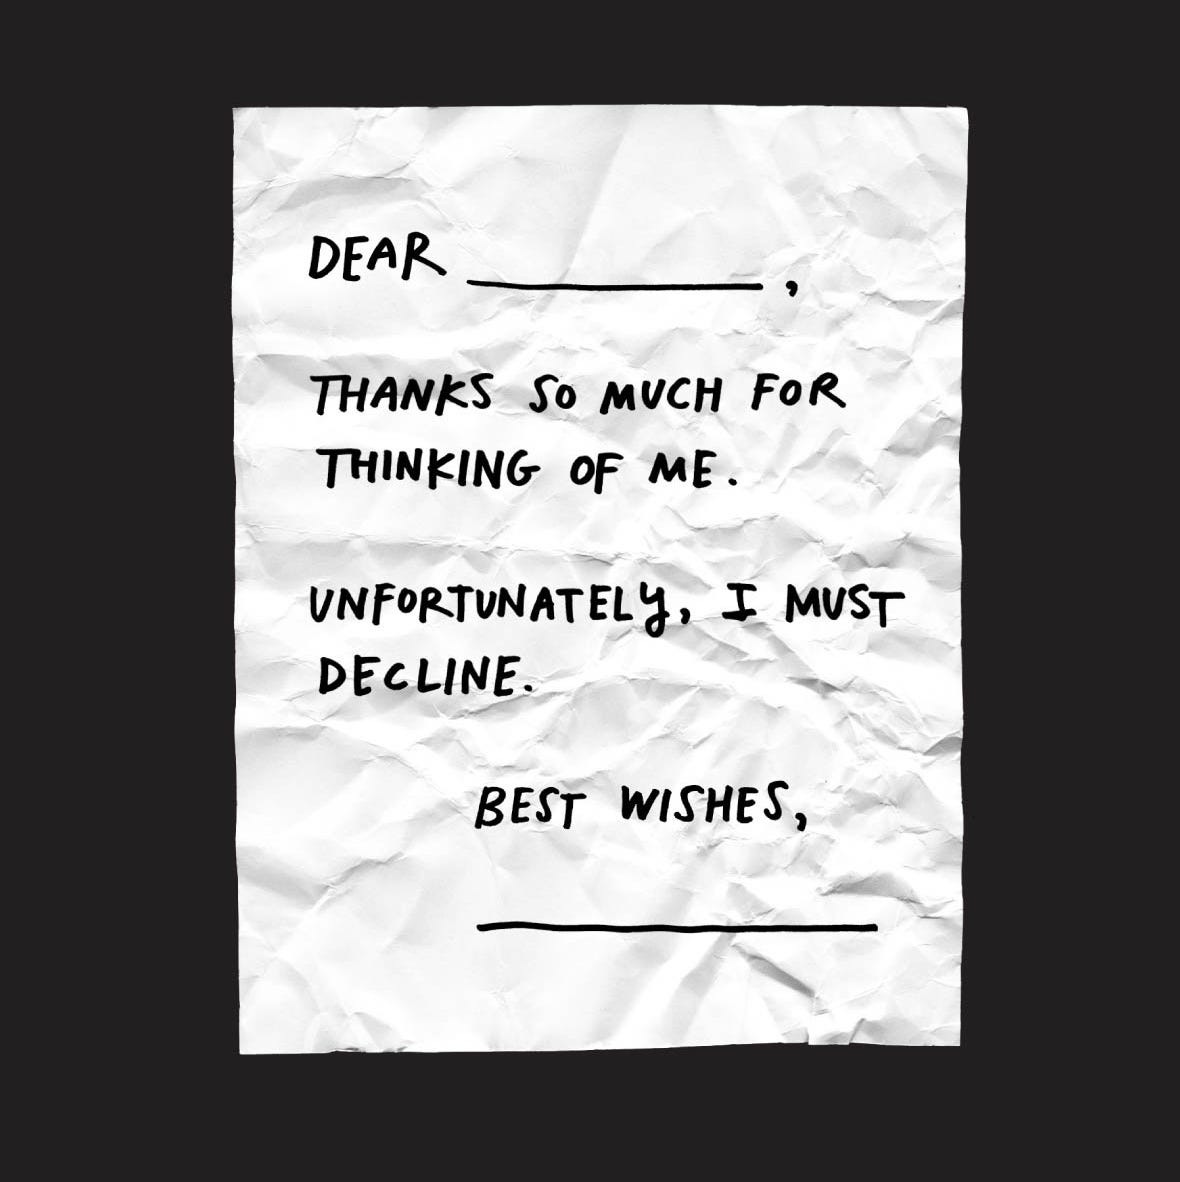 DEAR __________,
THANKS SO MUCH FOR
THINKING OF ME.
UNFORTUNATELY, I MUST
DECLINE.
BEST WISHES,
______________